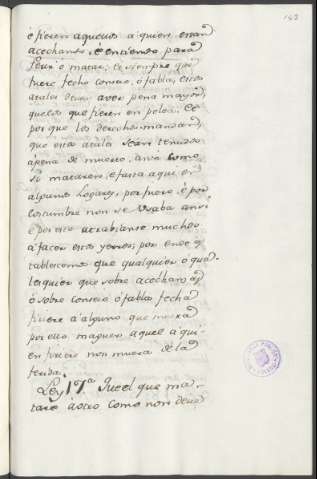 é fieren aquellos á quien están
acechando, é enciendo para
ferir ó matar; é siempre que
fuere fecho consejo, ó fabla, estos
atales deven aver pena mayor,
que los que fieren en pelea. E
por que los derechos mandan,
que estos atales sean tenudos
á pena de muerte, ansi como
si matasen, é fasta aqui en
algunos Logares, por fuero é por
costumbre non se usaba ansi
é por eso atrebianse muchos
á facer estos yerros; por ende es
tablescemos que qualquier ó qua-
lesquier que sobre acechanzas,
ó sobre consejo ó fabla fecha
firiere á alguno que muera
por ello, maguer aquel á qui
en firiere non muera de la
ferida.
Ley 17ª. Que el que ma-
tare á otro como non deve